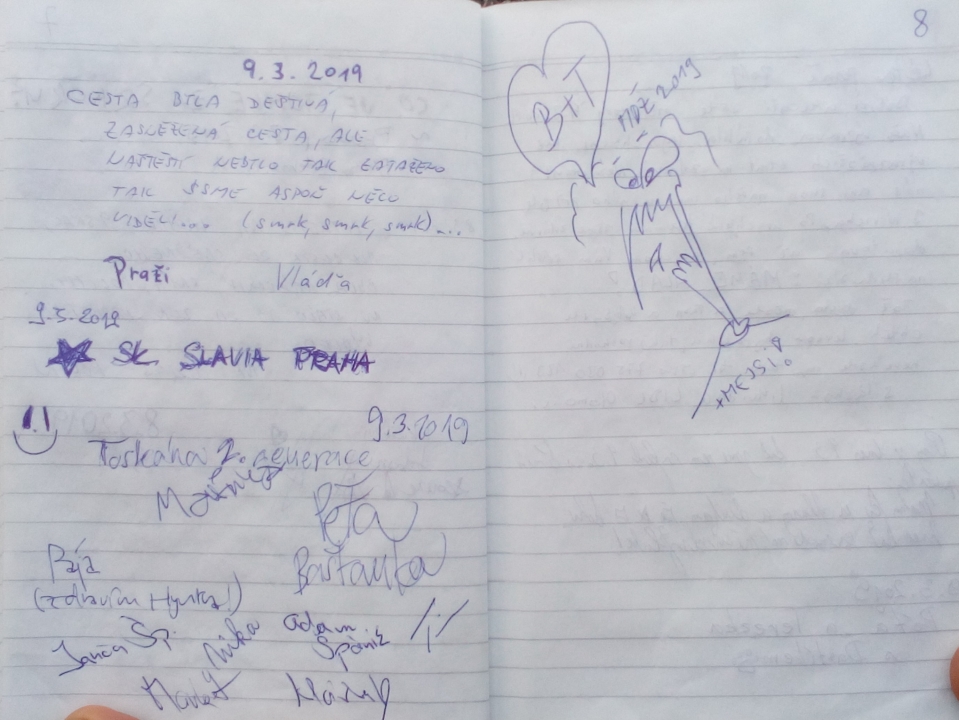 9. 3. 2019
CESTA BYLA DEŠTIVÁ,
ZASNĚŽENÁ CESTA, ALE
NAŠTĚSTÍ NEBYLO TAK ZATAŽENO
TAK JSME ASPOŇ NĚCO
VIDĚLI.... (smrk, smrk, smrk)...
Praži Vláďa
9.3.2019
SK SLAVIA PRAHA
9.3.2019
Toskána 2. generace
Péťa
Barťanka
Pája
(zdravím Hynka!)
Adam
Jančа Šp.
Nika
8
B+T
2019
+MEJSI?